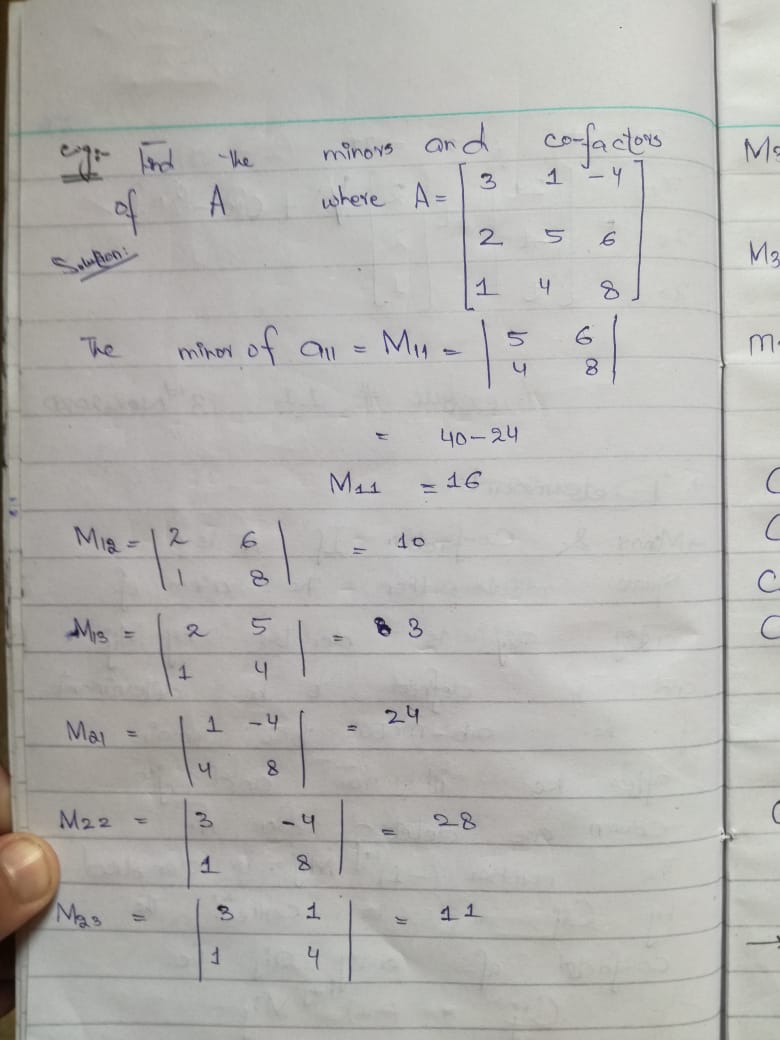 eg:- Find the minors and co-factors
of A where A = [ 3 1 -4
2 5 6
1 4 8 ]
Solution:
The minor of a11 = M11 = | 5 6
4 8 |
= 40-24
M11 = 16
M12 = | 2 6
1 8 | = 10
M13 = | 2 5
1 4 | = 3
M21 = | 1 -4
4 8 | = 24
M22 = | 3 -4
1 8 | = 28
M23 = | 3 1
1 4 | = 11
M3
m
C
C
C
C
C